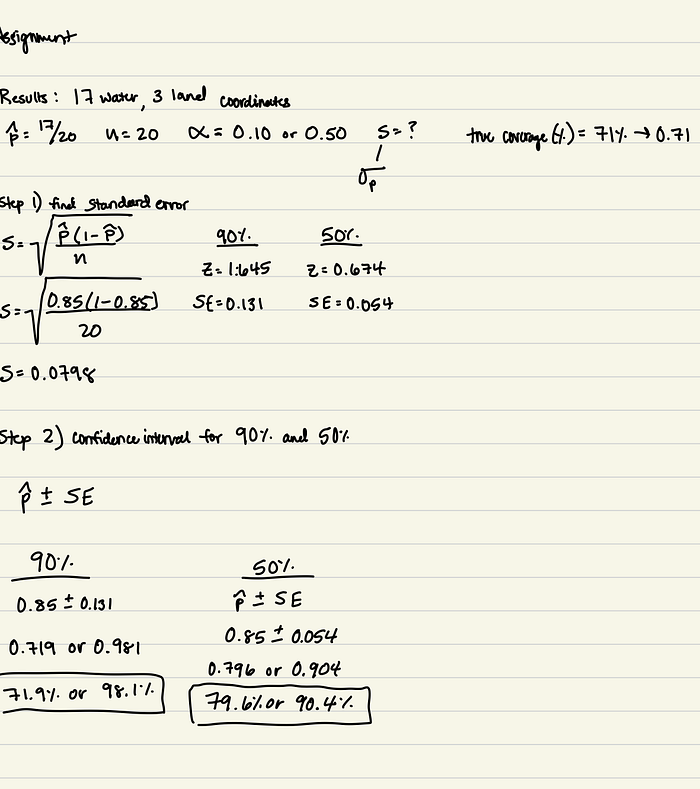 Assignment
Results: 17 water, 3 land coordinates
p̂ = 17/20 n = 20 α = 0.10 or 0.50 S = ? true coverage (%) = 71% → 0.71
σp
Step 1) find standard error
S = √(p̂(1-p̂)/n) 90% 50%
Z = 1.645 Z = 0.674
S = √(0.85(1-0.85)/20) SE = 0.131 SE = 0.054
S = 0.0798
Step 2) confidence interval for 90% and 50%
p̂ ± SE
90% 50%
0.85 ± 0.131 p̂ ± SE
0.719 or 0.981 0.85 ± 0.054
0.796 or 0.904
71.9% or 98.1% 79.6% or 90.4%